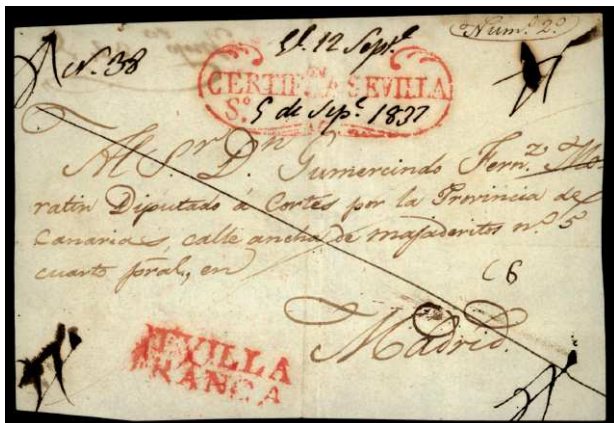 Num.º 2.º
N. 38
El. 12 Sept.e
CERTIF. SEVILLA
S.º 5 de Sep.e 1837
Al S.r D.n Gumercindo Fern.z Mo-
ratin Diputado á Cortes por la Provincia de
Canarias, calle ancha de majaderitos n.º 5
cuarto pral., en
C6
Madrid.
SEVILLA
FRANCA